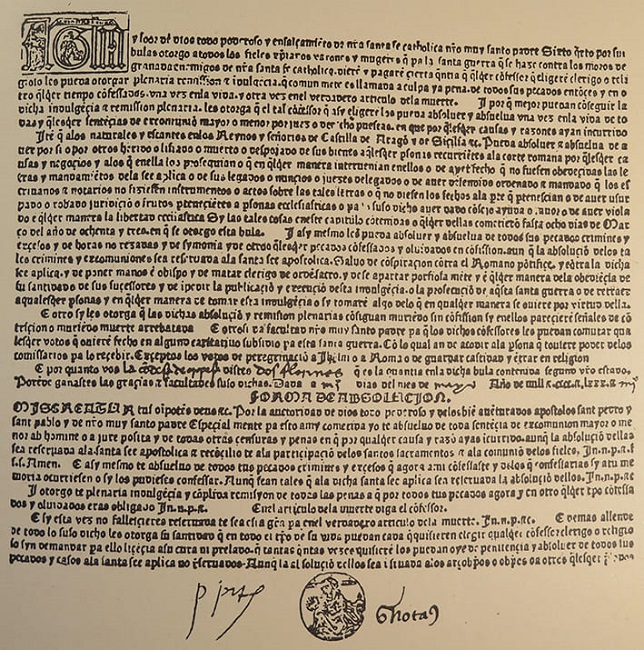 y loor de dios todo poderoso y ensalçamiēto de nr̄a santa fe catholica nr̄o muy santo padre Sixto q̄rto por sui
bulas otorgo atodos los fieles xp̄ianos varones y mugeres q̄ pa la santa guerra q̄ se haze contra los moros de
granada enemigos de nr̄a santa fe catholica. dierē y pagarē cierta q̄ntia q̄ q̄lq̄er cōfessor q̄ eligerē clerigo o reli
gioso les pueda otorgar plenaria remission e indulgēcia. q̄ comun mēte es llamada a culpa ya pena. de todos sus pecados entōces y en o
tro q̄lq̄er tiempo cōfessados. vna vez enla vida. y otra vez el verdadero articulo dela muerte. J por q̄ mejor puedan cōseguir la
dicha indulgēcia e remission plenaria. les otorga q̄ el tal cōfessor q̄ assy eligerē los pueda absoluer y absuelua vna vez enla vida de to
das y q̄lesq̄er sentēcias de excomuniō mayor o menor por jues o der̄cho puestas. en que por q̄lesq̄er causas y razones ayan incurrido
Jtē q̄ alos naturales y estantes enlos Reynos y señorios de Castilla de Aragō y de Sicilia &c. Pueda absoluer e absuelua de a
uer por si o por otros herido o lisiado o muerto o despojado de sus bienes a q̄lesq̄er psonas recurriētes ala corte romana por q̄lesq̄er ca
usas y negocios y alos q̄ enella los prosequian o q̄ en q̄lq̄er manera interuenian enellos o de auer fecho q̄ no fuesen obedecidas las le
tras y mandamiētos dela see ap̄lica o de sus legados o nuncios o jueses delegados o de auer defendido ordenado e mandado q̄ los es
criuanos e notarios no fiziesen instrumentos o actos sobre las tales letras o q̄ no diesen los fechos ala pte q̄ pertenescian o de auer usur
pado o robado juridiciō o frutos ptenesciētes a psonas eclesiasticas o pa lo suso dicho auer dado cōsejo ayuda o fauor o de auer viola
do e q̄lq̄er manera la libertad ecclesiastica Sy las tales cosas eneste capitulo cōtenidas o q̄lq̄er dellas cometierō fasta ocho dias de Mar
ço del año de ochenta y tres. en q̄ se otorgo esta bula. J assy mesmo les pueda absoluer e absuelua de todos sus pecados crimines y
excesos e de horas no rezadas y de symonia y de otros q̄lesq̄er pecados cōfessados y oluidados en cōfission. aunq̄ la absoluciō delos ta
les crimines y excomuniones sea reseruada ala santa see apostolica. Saluo de cōspiracion cōtra el Romano pōtifice. y cōtra la dicha
see ap̄lica. y de poner manos ē obispo y de matar clerigo de ordē sacro. y de se apartar porfiosa mēte y ē q̄lq̄er manera dela obediēcia de
su santidad e de sus sucessores y de īpedir la publicaciō y execuciō desta indulgēcia. o la prosecuciō de aq̄sta santa guerra o de retraer
aqualesq̄er psonas y en q̄lq̄er manera de tomar esta indulgēcia o sy tomarē algo delo q̄ en qualq̄er manera se ouiere por virtud della.
E otro sy les otorga q̄ las dichas absoluciō y remision plenarias cōsiguan murido sin cōfission sy enellos pareciere señales de cō
tricion o muriēdo muerte arrebatada E otrosi da facultad nr̄o muy santo padre pa q̄ los dichos cōfessores les puedan comutar qua
lesq̄er votos q̄ ouierē fecho en algun caritatiuo subsidio pa esta santa guerra. Cō lo qual an de acodir ala psona q̄ touiere poder delos
comissarios pa lo recebir. Exceptos los votos de peregrinaciō a Jhr̄lm̄ o a Roma o de guardar castidad y ētrar en religion
E por quanto vos distes dos florines q̄ es la quantia enla dicha bula contenida segund vr̄o estado.
Por ēde ganastes las gracias e facultades suso dichas. Dada a dias del mes de mayo Año de mill e cccc e lxxx e
FORMA DE ABSOLUCION.
MISEREATUR tui oīpotēs deus &c. Por la auctoridad de dios todo poderoso y delos biē auēturados apostolos sant pedro y
sant pablo y de nr̄o muy santo padre Especial mente pa esto amy cometida yo te absueluo de toda sentēcia de excomunion mayor o me
nor ab homine o a jure posita y de todas otras censuras y penas en q̄ por qualq̄er causa y razō ayas icurrido. aunq̄ la absoluciō dellas
sea reseruada ala santa see apostolica e recōcilio te ala participaciō delos santos sacramentos e ala comuniō delos fieles. Jn. n. p. e f.
e s. s. Amen. E assy mesmo te absueluo de todos tus pecados crimines y excesos q̄ agora ami cōfessaste y delos q̄ cōfessarias sy atu me
moria ocurriesen o sy los pudieses confessar. Aunq̄ sean tales q̄ ala dicha santa see ap̄lica sea reseruada la absoluciō dellos. Jn. n. p. &c
J otorgo te plenaria indulgēcia y cōplida remisyon de todas las penas a q̄ por todos tus pecados agora y en otro q̄lq̄er tpo cōfessa
dos y oluidados eras obligado Jn. n. p. &c. En el articulo dela muerte diga el cōfessor.
E sy esta vez no fallescieres reseruada te sea esta gr̄a pa enel verdadero articulo dela muerte. Jn. n. p. &c. E demas allende
de todo lo suso dicho les otorga su santidad q̄ en todo el tp̄o de su vida puedan cada q̄ quisieren elegir qualq̄er cōfessor clerigo o religio
so syn demandar pa ello licēcia asu cura ni prelado. q̄ tantas q̄ntas vezes quisierē los pueda oyr de penitencia y absoluer de todos sus
pecados y casos ala santa see ap̄lica no reseruados. Aunq̄ la absoluciō dellos sea reseruada alos arçob̄pos o ob̄pos o a otros q̄lesq̄er